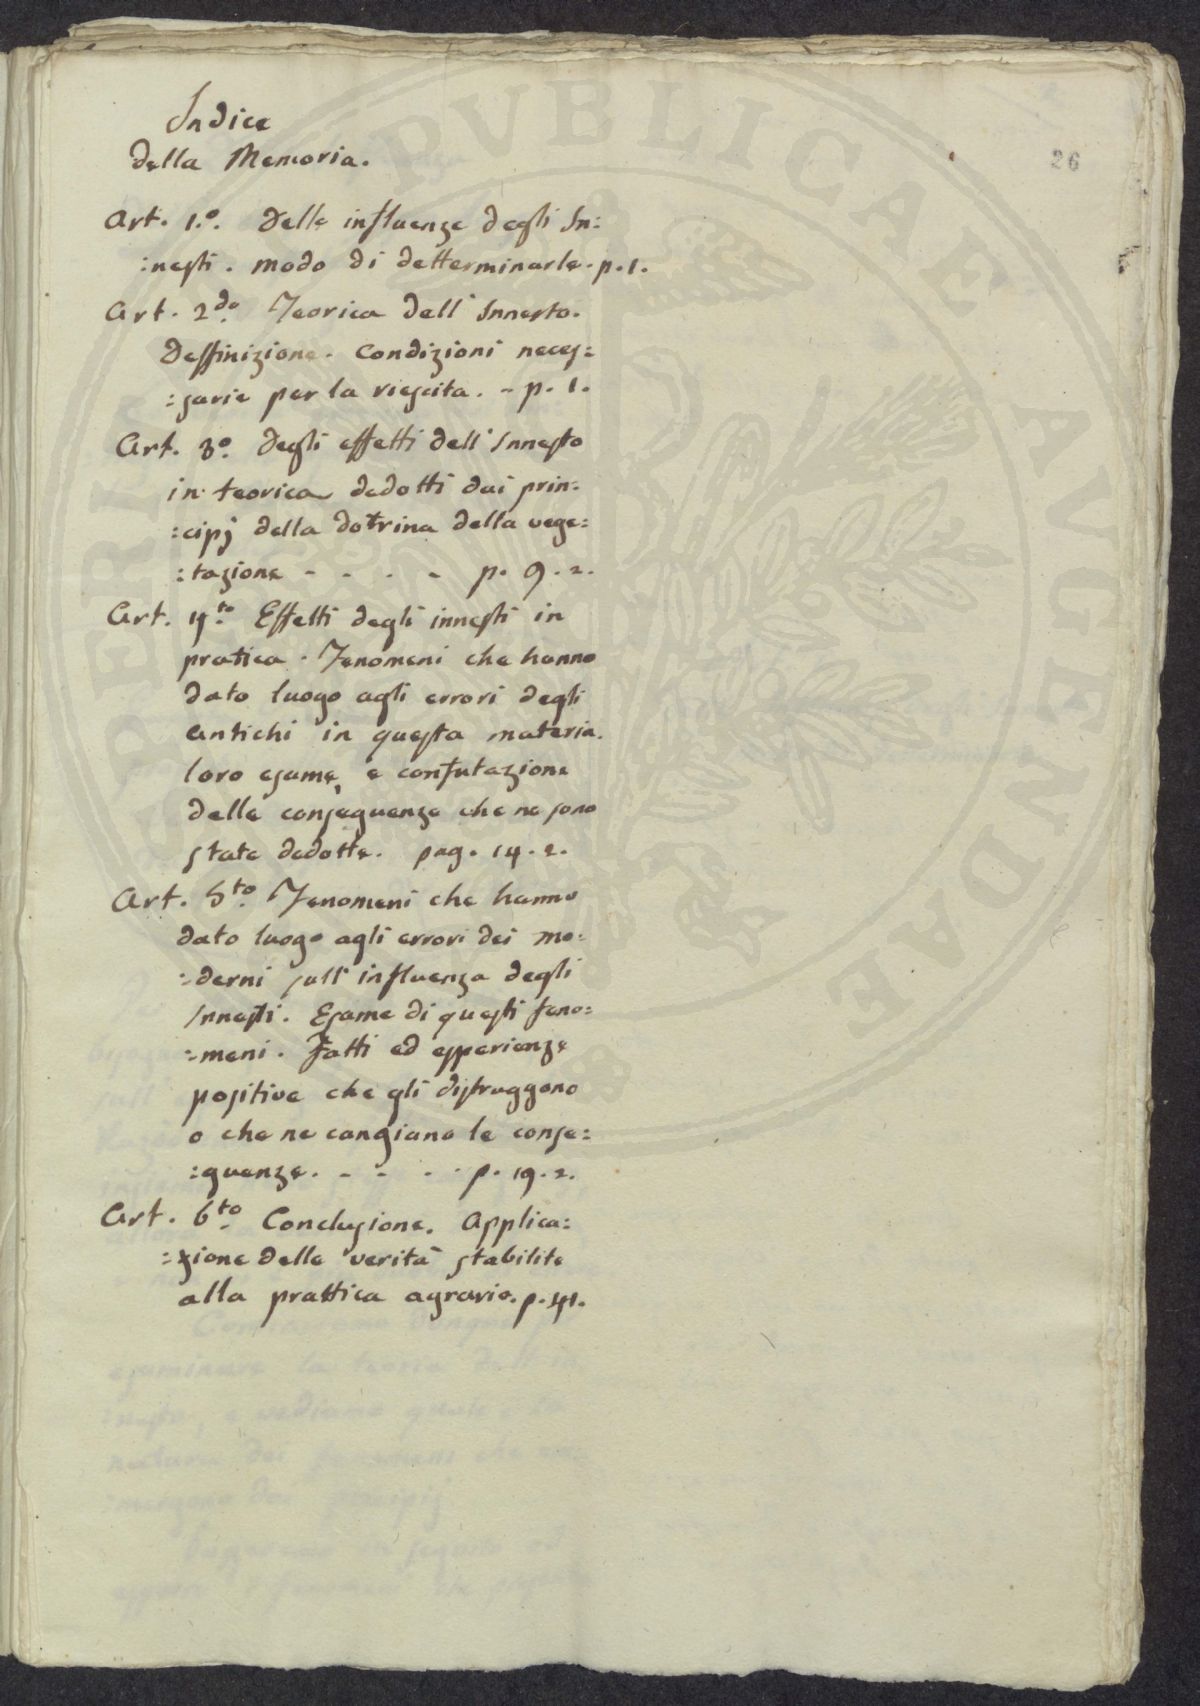 Indice
della Memoria.
26
Art. 1.º. Delle influenze degli In:
:nesti. modo di detterminarle. p. 1.
Art. 2do. Teorica dell' Innesto.
Deffinizione. Condizioni neces:
:sarie per la riescita. - p. 1.
Art. 3º. Degli effetti dell' Innesto
in teorica dedotti dai prin:
:cipj della dotrina della vege:
:tazione - - - - p. 9. 2.
Art. 4to. Effetti degli innesti in
pratica. Fenomeni che hanno
dato luogo agli errori degli
antichi in questa materia.
loro esame, e confutazione
delle conseguenze che ne sono
state dedotte. pag. 14. 2.
Art. 5to. Fenomeni che hanno
dato luogo agli errori dei mo:
:derni sull' influenza degli
Innesti. Esame di questi feno:
:meni. Fatti ed esperienze
positive che gli distruggono
o che ne cangiano le conse:
:guenze. - - - - p. 19. 2.
Art. 6to. Conclusione. Applica:
:zione delle verità stabilite
alla prattica agraria. p. 41.